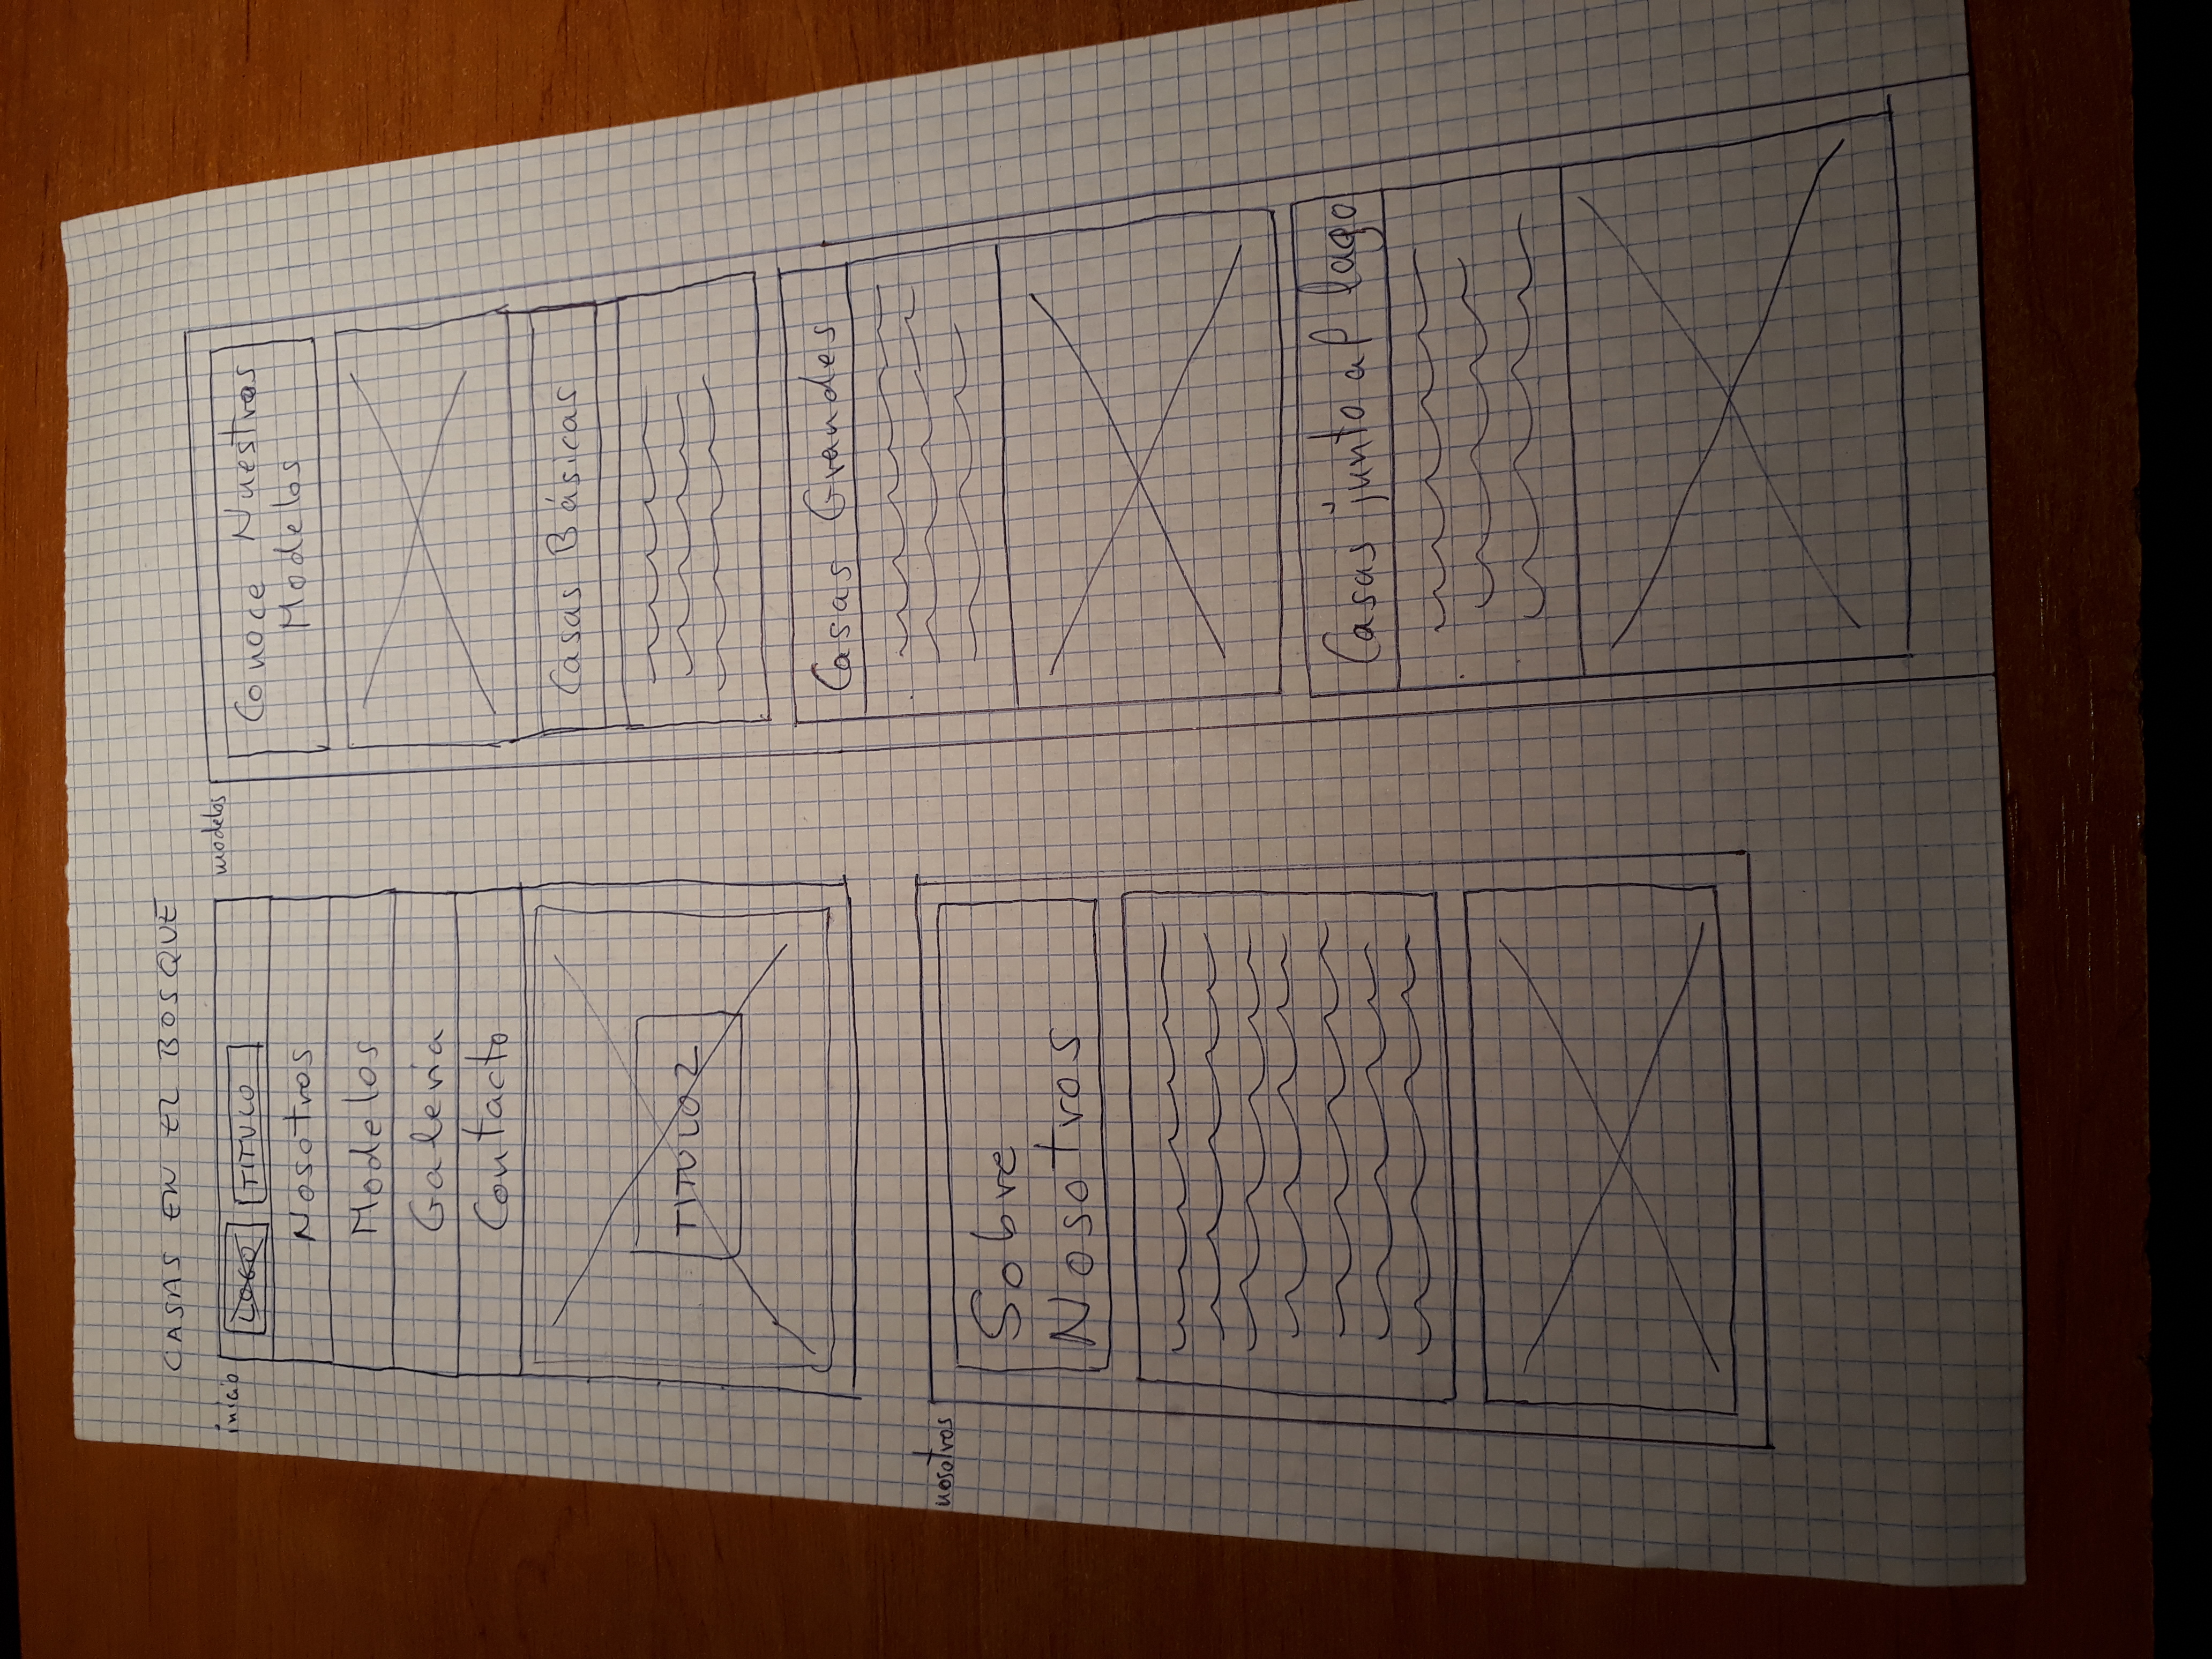 CASAS EN EL BOSQUE
inicio
LOGO TITULO
Nosotros
Modelos
Galería
Contacto
TITULO 2
nosotros
Sobre
Nosotros
modelos
Conoce Nuestros
Modelos
Casas Básicas
Casas Grandes
Casas junto al lago